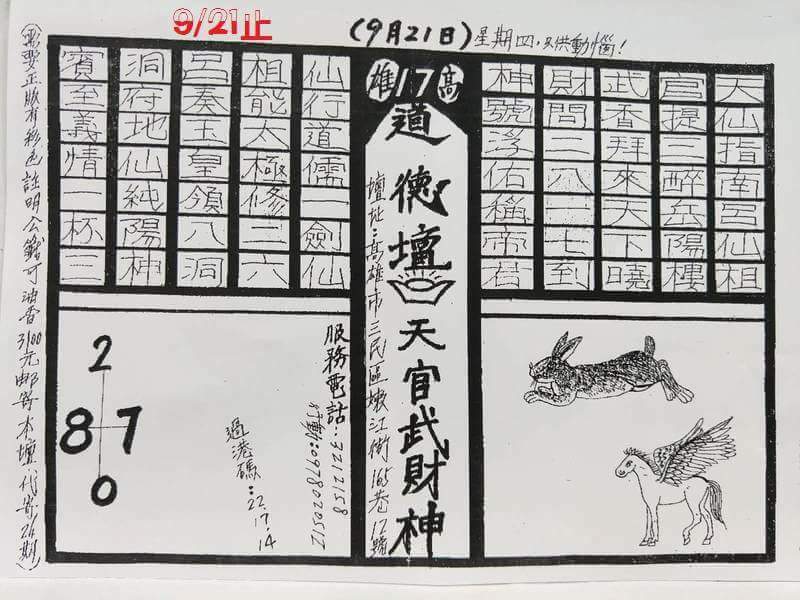 9/21止
(9月21日)星期四,只供動惱!
天仙指南呂仙祖
官提三醉岳陽樓
武香拜來天下曉
財問二八二七到
神號浮佑稱帝君
雄17高
道德壇
天官武財神
壇址:高雄市三民區嫩江街165巷12號
仙行道儒一劍仙
祖能太極修二六
呂奏玉皇領八洞
洞府地仙純陽神
賓至義情一杯三
服務電話:3212158
行動:0978020517
過港碼:22.17.14
2
8 7
0
(需要正版有彩色註明公籤可油香3100元郵寄本壇代寄26期)